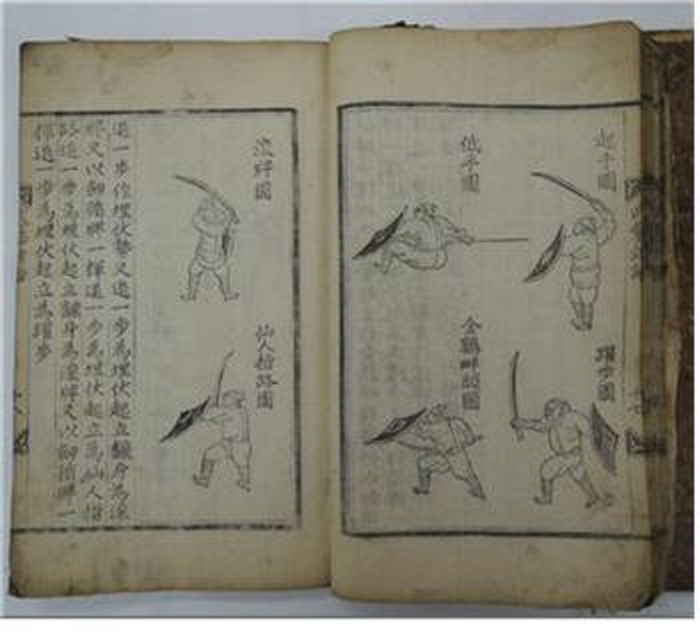 起手圖
躍步圖
低平圖
金鷄畔頭圖
滾牌圖
仙人指路圖
進一步作埋伏勢又進一步為埋伏起立飜身為滾
牌又以劒循牌一揮進一步為埋伏起立為仙人指
路進一步為埋伏起立飜身為滾牌又以劒循牌一
揮進一步為埋伏起立為躍步